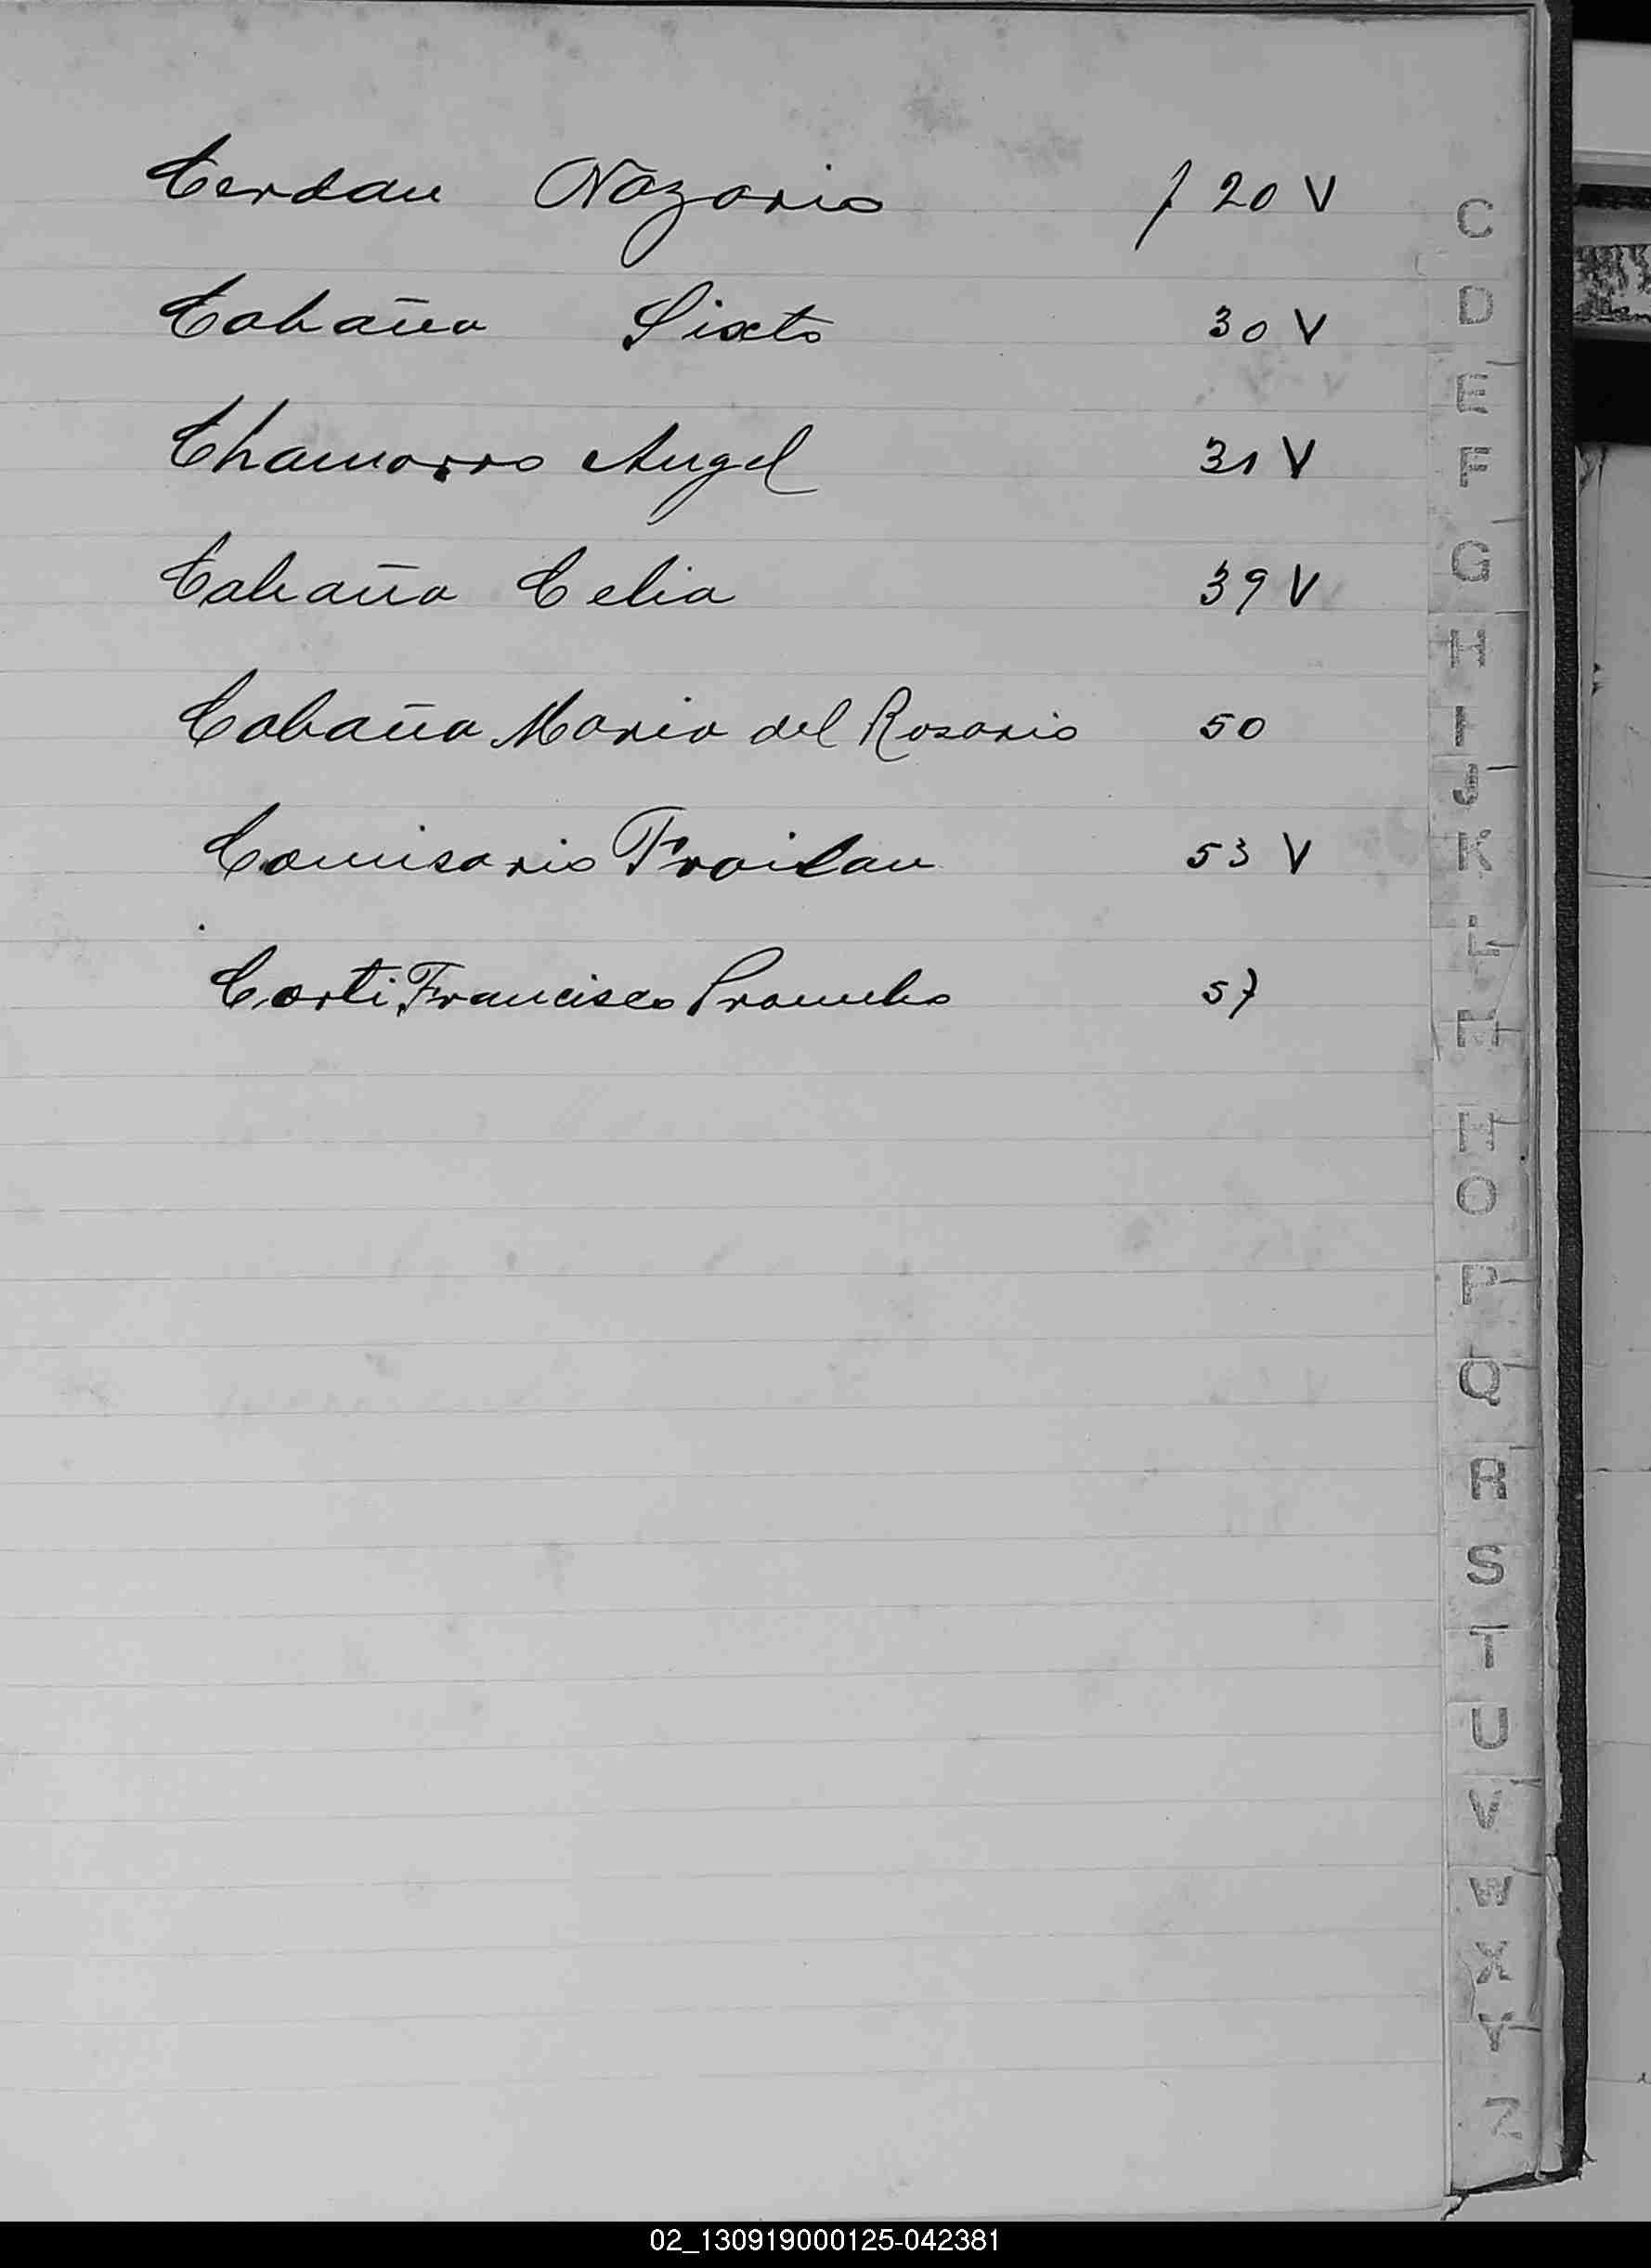 Cerdan Nazario f 20 V
Cabaña Sixto 30 V
Chamorro Angel 31 V
Cabaña Celia 39 V
Cabaña Maria del Rosario 50
Comisario Froilan 53 V
Corti Francisco 57
C
D
E
F
G
H
I
J
K
L
M
N
O
P
Q
R
S
T
U
V
W
X
Y
Z
02_130919000125-042381